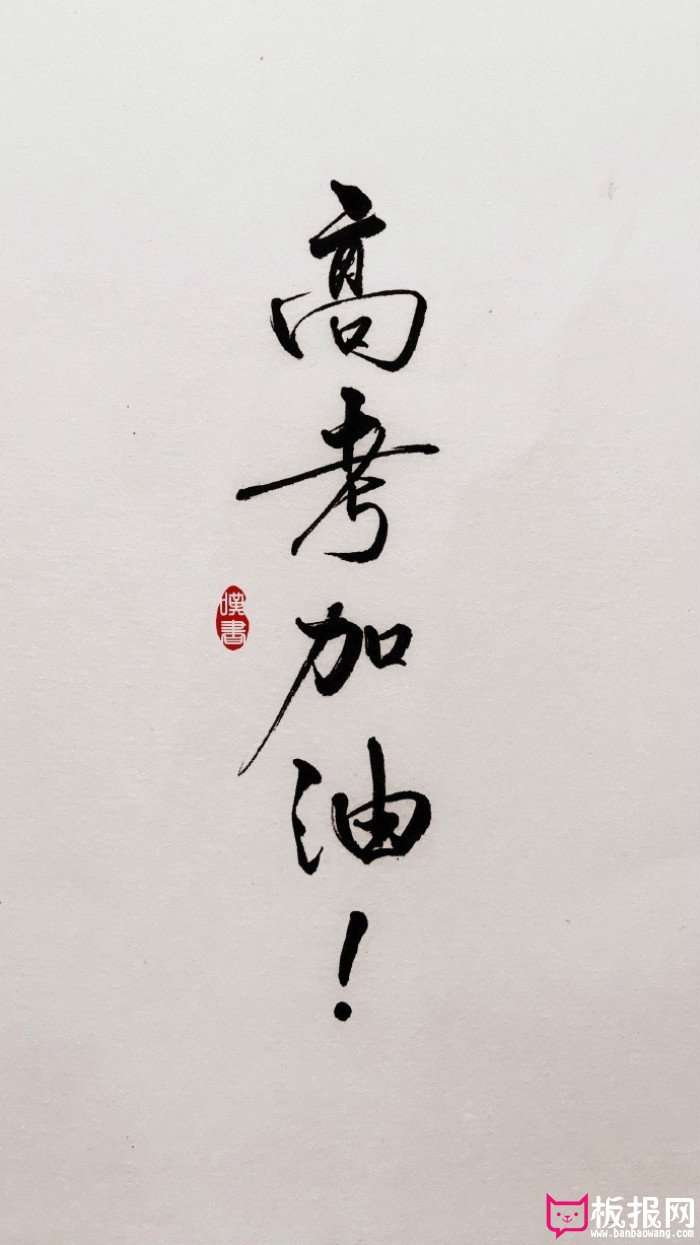 高考加油！
嘆書
板报网
www.banbaowang.com